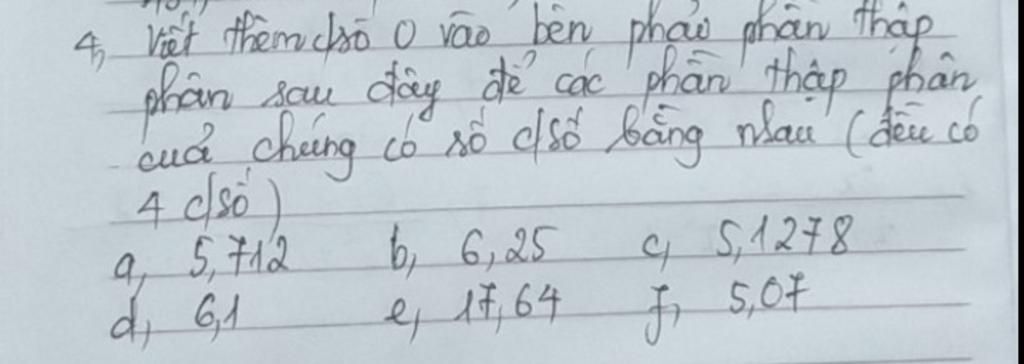 4, Viết thêm c/số 0 vào bên phải phần thập
phân sau đây để các phần thập phân
của chúng có số c/số bằng nhau (đều có
4 c/số)
a, 5,712 b, 6,25 c, 5,1278
d, 6,1 e, 17,64 f, 5,07